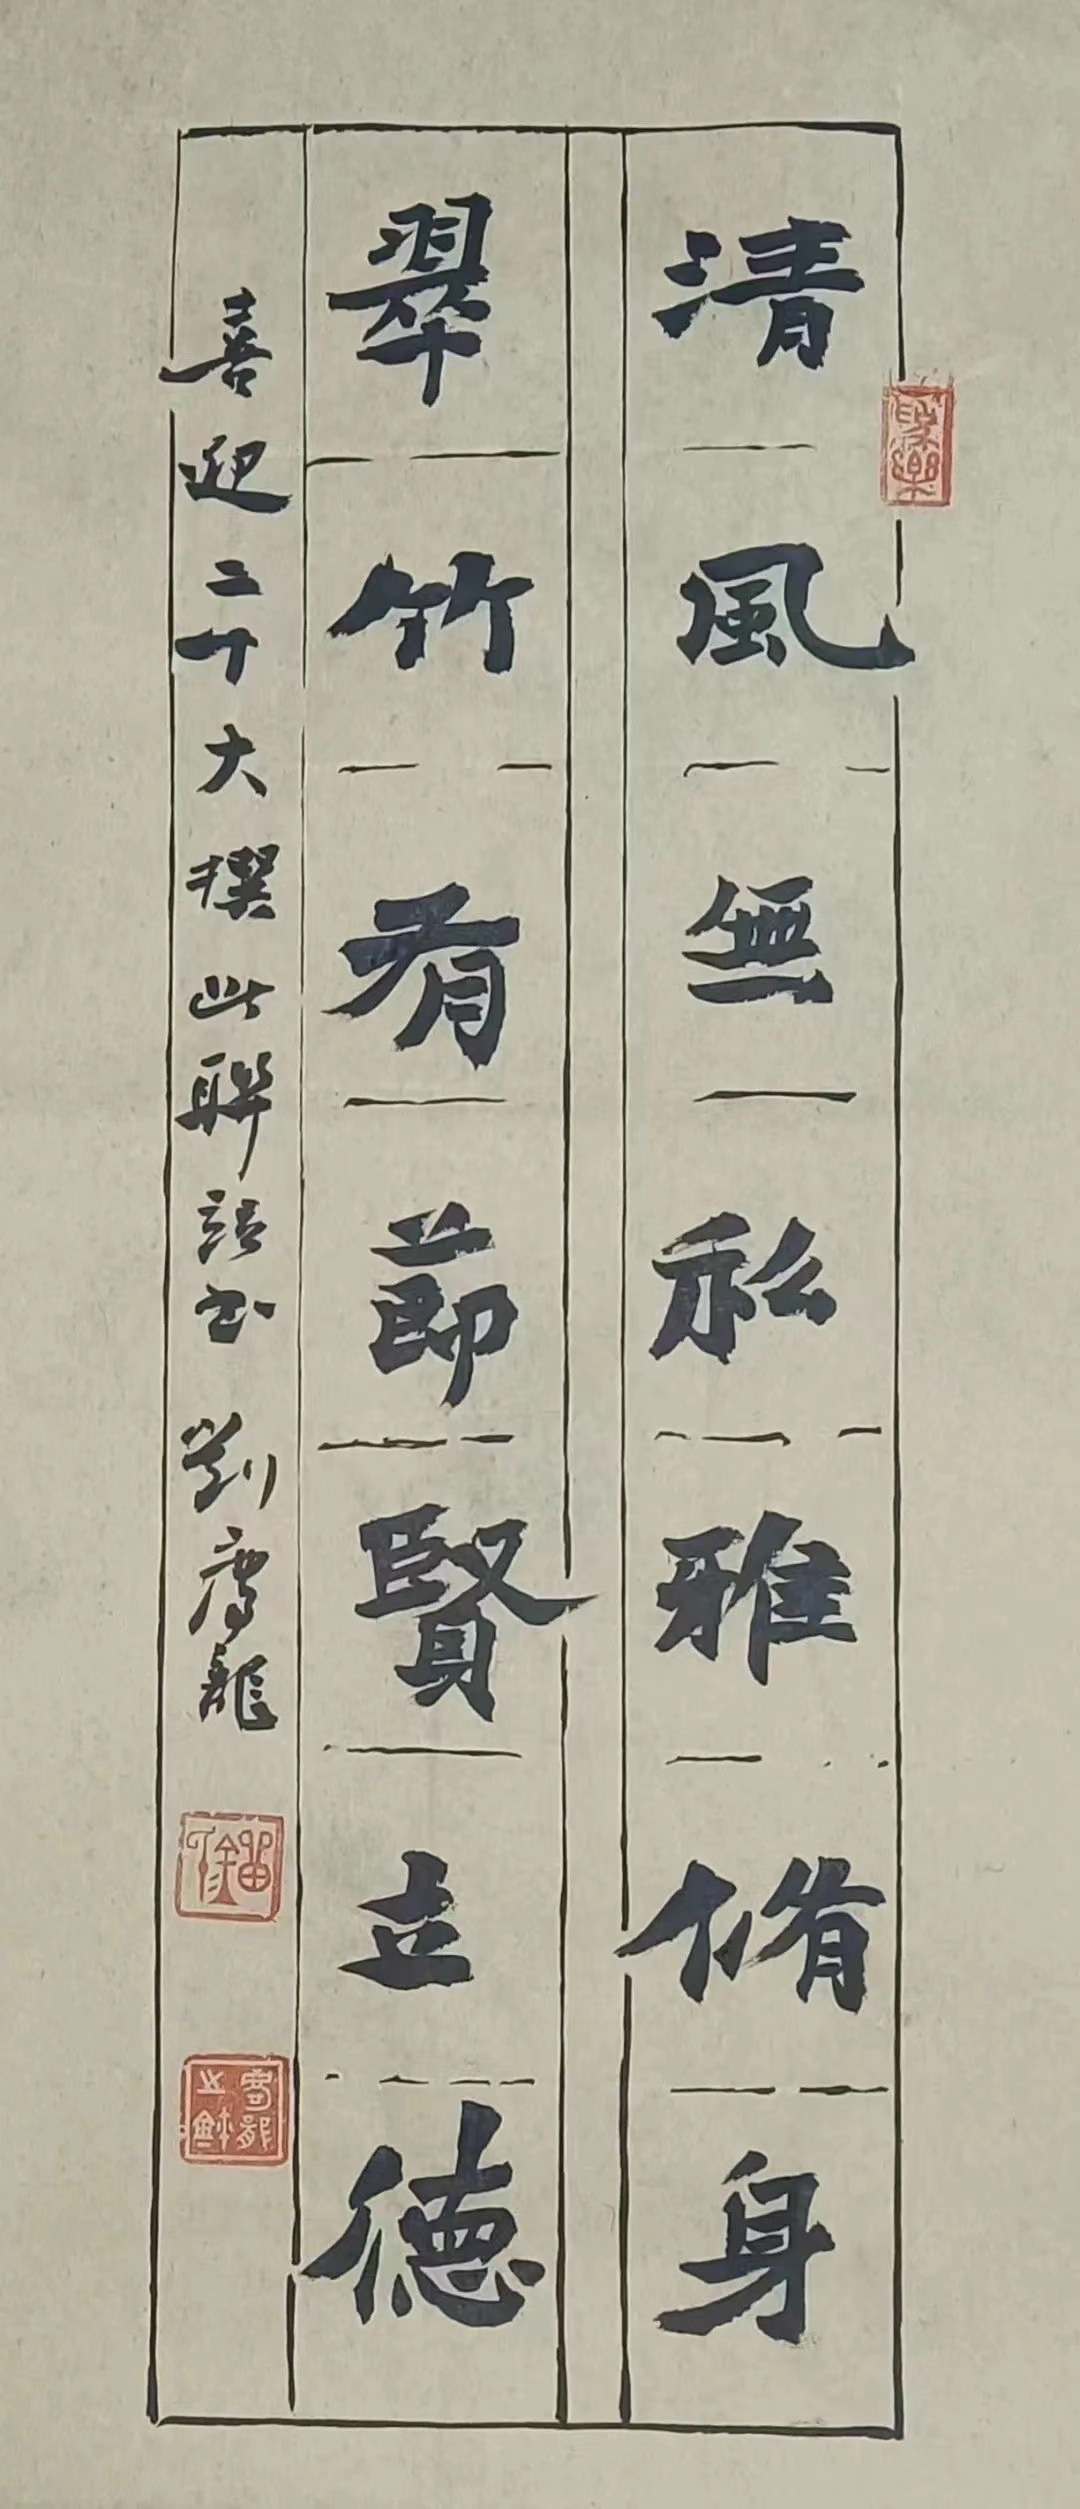 清風無私雅脩身
翠竹有節賢立德
喜迎二十大撰此聯語書 劉慶龍